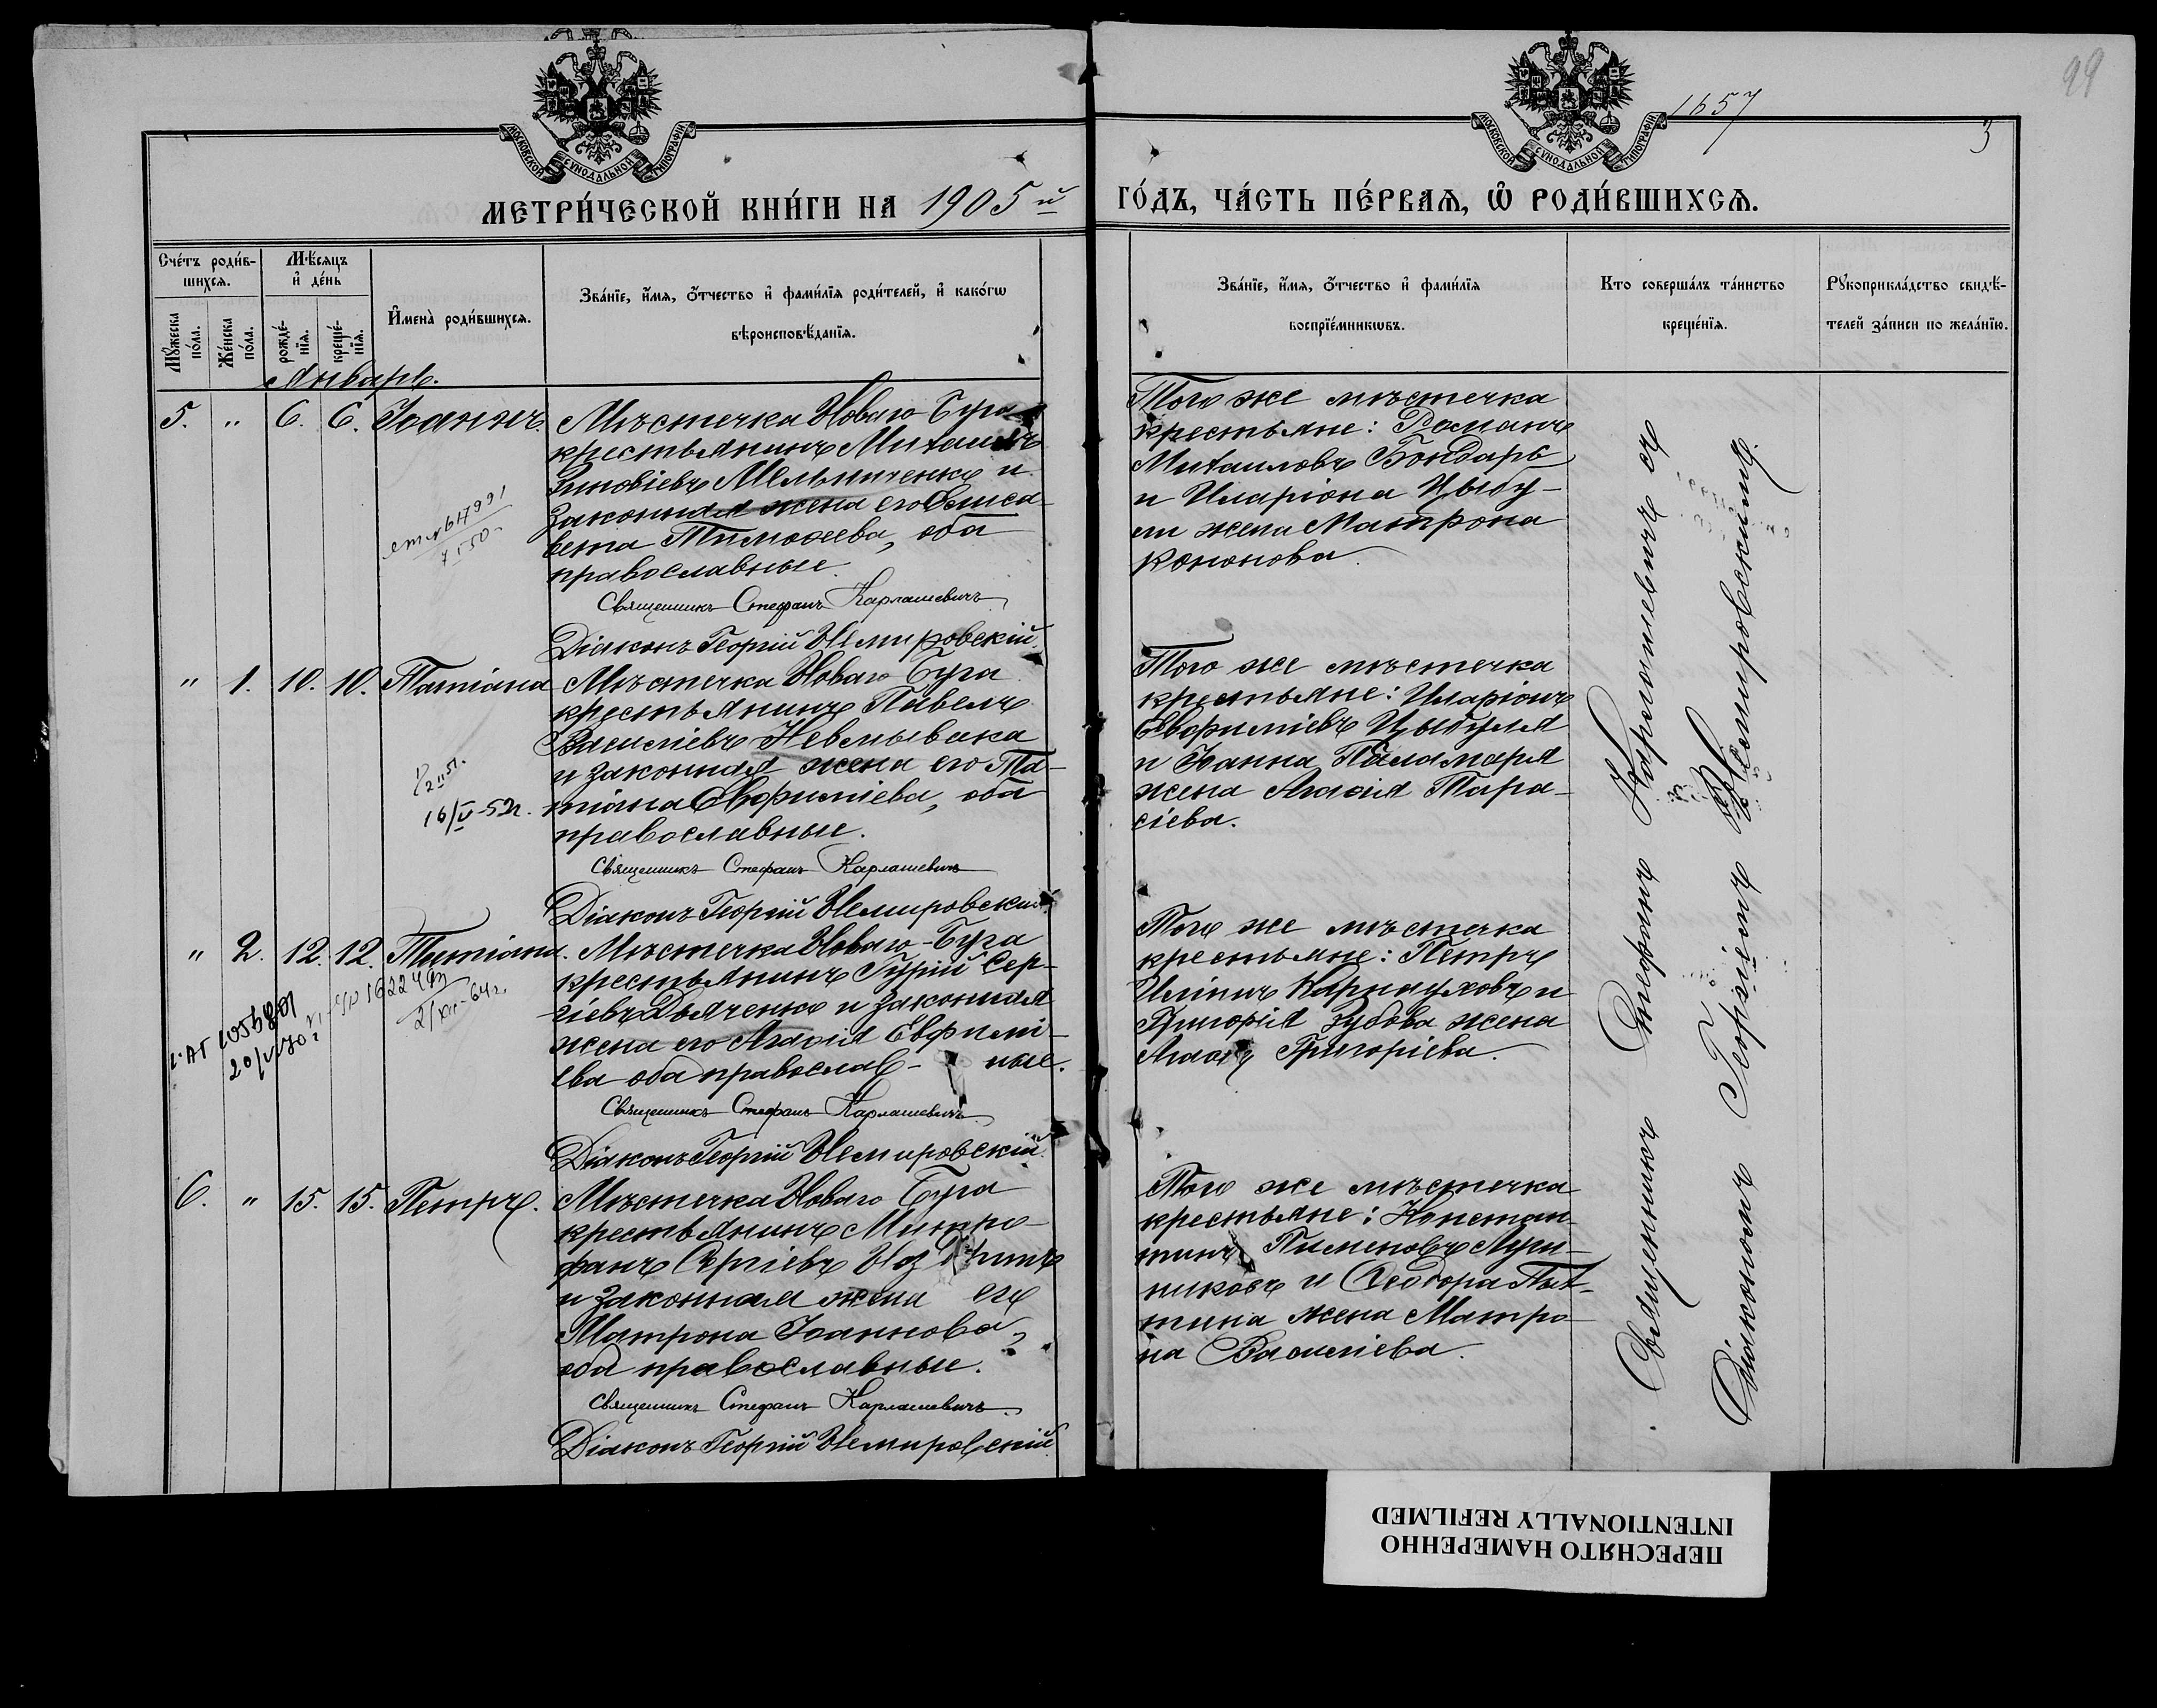 МОСКОВСКОЙ СѴНОДАЛЬНОЙ ТИПОГРАФІИ
МОСКОВСКОЙ СѴНОДАЛЬНОЙ ТИПОГРАФІИ
1657
99
3
МЕТРИ́ЧЕСКОЙ КНИ́ГИ НА 1905й
ГО́ДЪ, ЧА́СТЬ ПЕ́РВАЯ, Ѡ҆ РОДИ́ВШИХСЯ.
Сче́тъ роди́в-
шихся.
Мꙋ́жеска по́ла.
Же́нска по́ла.
Мѣ́сяцъ
и҆ де́нь
рожде́-
нїя.
креще́-
нїя.
И҆мена̀ роди́вшихся.
Зва́нїе, и҆́мя, ѻ҆́тчество и҆ фами́лїя роди́телей, и҆ како́гѡ
вѣроисповѣ́данїя.
Зва́нїе, и҆́мя, ѻ҆́тчество и҆ фами́лїя
воспрїе́мникѡвъ.
Кто соверша́лъ та́инство
креще́нїя.
Рꙋкоприкла́дство свидѣ́-
телей за́писи по жела́нїю.
Январь.
5. " 6. 6. Іоаннъ.
Мѣстечка Новаго Буга
крестьянинъ Михаилъ
Зиновіевъ Мельниченко и
законная жена его Елиса-
вета Тимоѳеева, оба
православные.
Священникъ Стефанъ Карлашевичъ
Діаконъ Георгій Немировскій
Того же мѣстечка
крестьяне: Романъ
Михаиловъ Бондарь
и Иларіона Цыбу-
ли жена Матрона
Кононова.
" 1. 10. 10. Татіана
16/V-52г.
Мѣстечка Новаго Буга
крестьянинъ Павелъ
Василіевъ Невмывака
и законная жена его Та-
тіана Евфиміева, оба
православные.
Священникъ Стефанъ Карлашевичъ
Діаконъ Георгій Немировскій
Того же мѣстечка
крестьяне: Иларіонъ
Евфиміевъ Цыбуля
и Іоанна Паламаря
жена Агаѳія Тара-
сіева.
" 2. 12. 12. Татіана.
20/V-70г
2/XII-64г.
Мѣстечка Новаго-Буга
крестьянинъ Гурій Сер-
гіевъ Дьяченко и законная
жена его Агаѳія Евфимі-
ева оба православ- ные.
Священникъ Стефанъ Карлашевичъ
Діаконъ Георгій Немировскій
Того же мѣстечка
крестьяне: Петръ
Иліинъ Карнауховъ и
Григорія Зубова жена
Григоріева.
6. " 15. 15. Петръ.
Мѣстечка Новаго Буга
крестьянинъ Митро-
фанъ Сергіевъ
и законная жена его
Матрона Іоаннова,
оба православные.
Священникъ Стефанъ Карлашевичъ
Діаконъ Георгій Немировскій
Того же мѣстечка
крестьяне: Констан-
тинъ Пименовъ
и Ѳеодора Пят-
тина жена Матро-
на Василіева.
Священникъ Стефанъ Карлашевичъ съ
Діакономъ Георгіемъ Немировскимъ.
ПЕРЕСНЯТО НАМЕРЕННО
INTENTIONALLY REFILMED